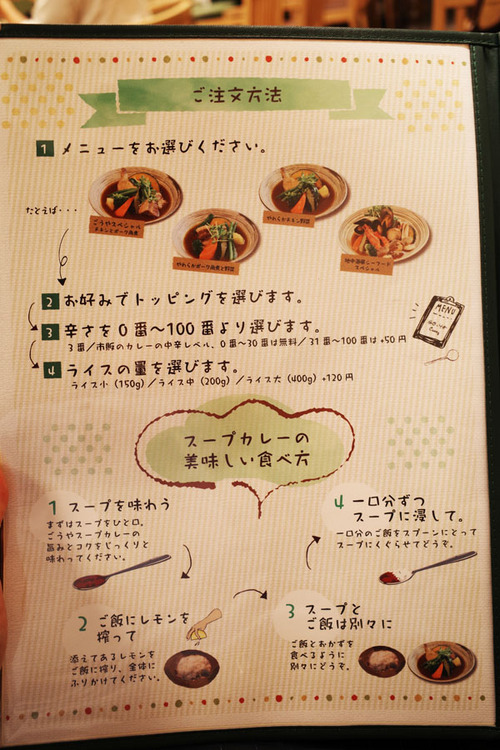 ご注文方法
1 メニューをお選びください。
たとえば・・・
ごうやスペシャル
チキンとポーク角煮
やわらかポーク角煮と野菜
やわらかチキン野菜
地中海風シーフード
スペシャル
2 お好みでトッピングを選びます。
MENU
3 辛さを0番〜100番より選びます。
3番/市販のカレーの中辛レベル、0番〜30番は無料/31番〜100番は+50円
4 ライスの量を選びます。
ライス小(150g)/ライス中(200g)/ライス大(400g)+120円
スープカレーの
美味しい食べ方
1 スープを味わう
まずはスープをひと口。
ごうやスープカレーの
旨みとコクをじっくりと
味わってください。
2 ご飯にレモンを
搾って
添えてあるレモンを
ご飯に搾り、全体に
ふりかけてください。
3 スープと
ご飯は別々に
ご飯とおかずを
食べるように
別々にどうぞ。
4 一口分ずつ
スープに浸して。
一口分のご飯をスプーンにとって
スープにくぐらせてどうぞ。